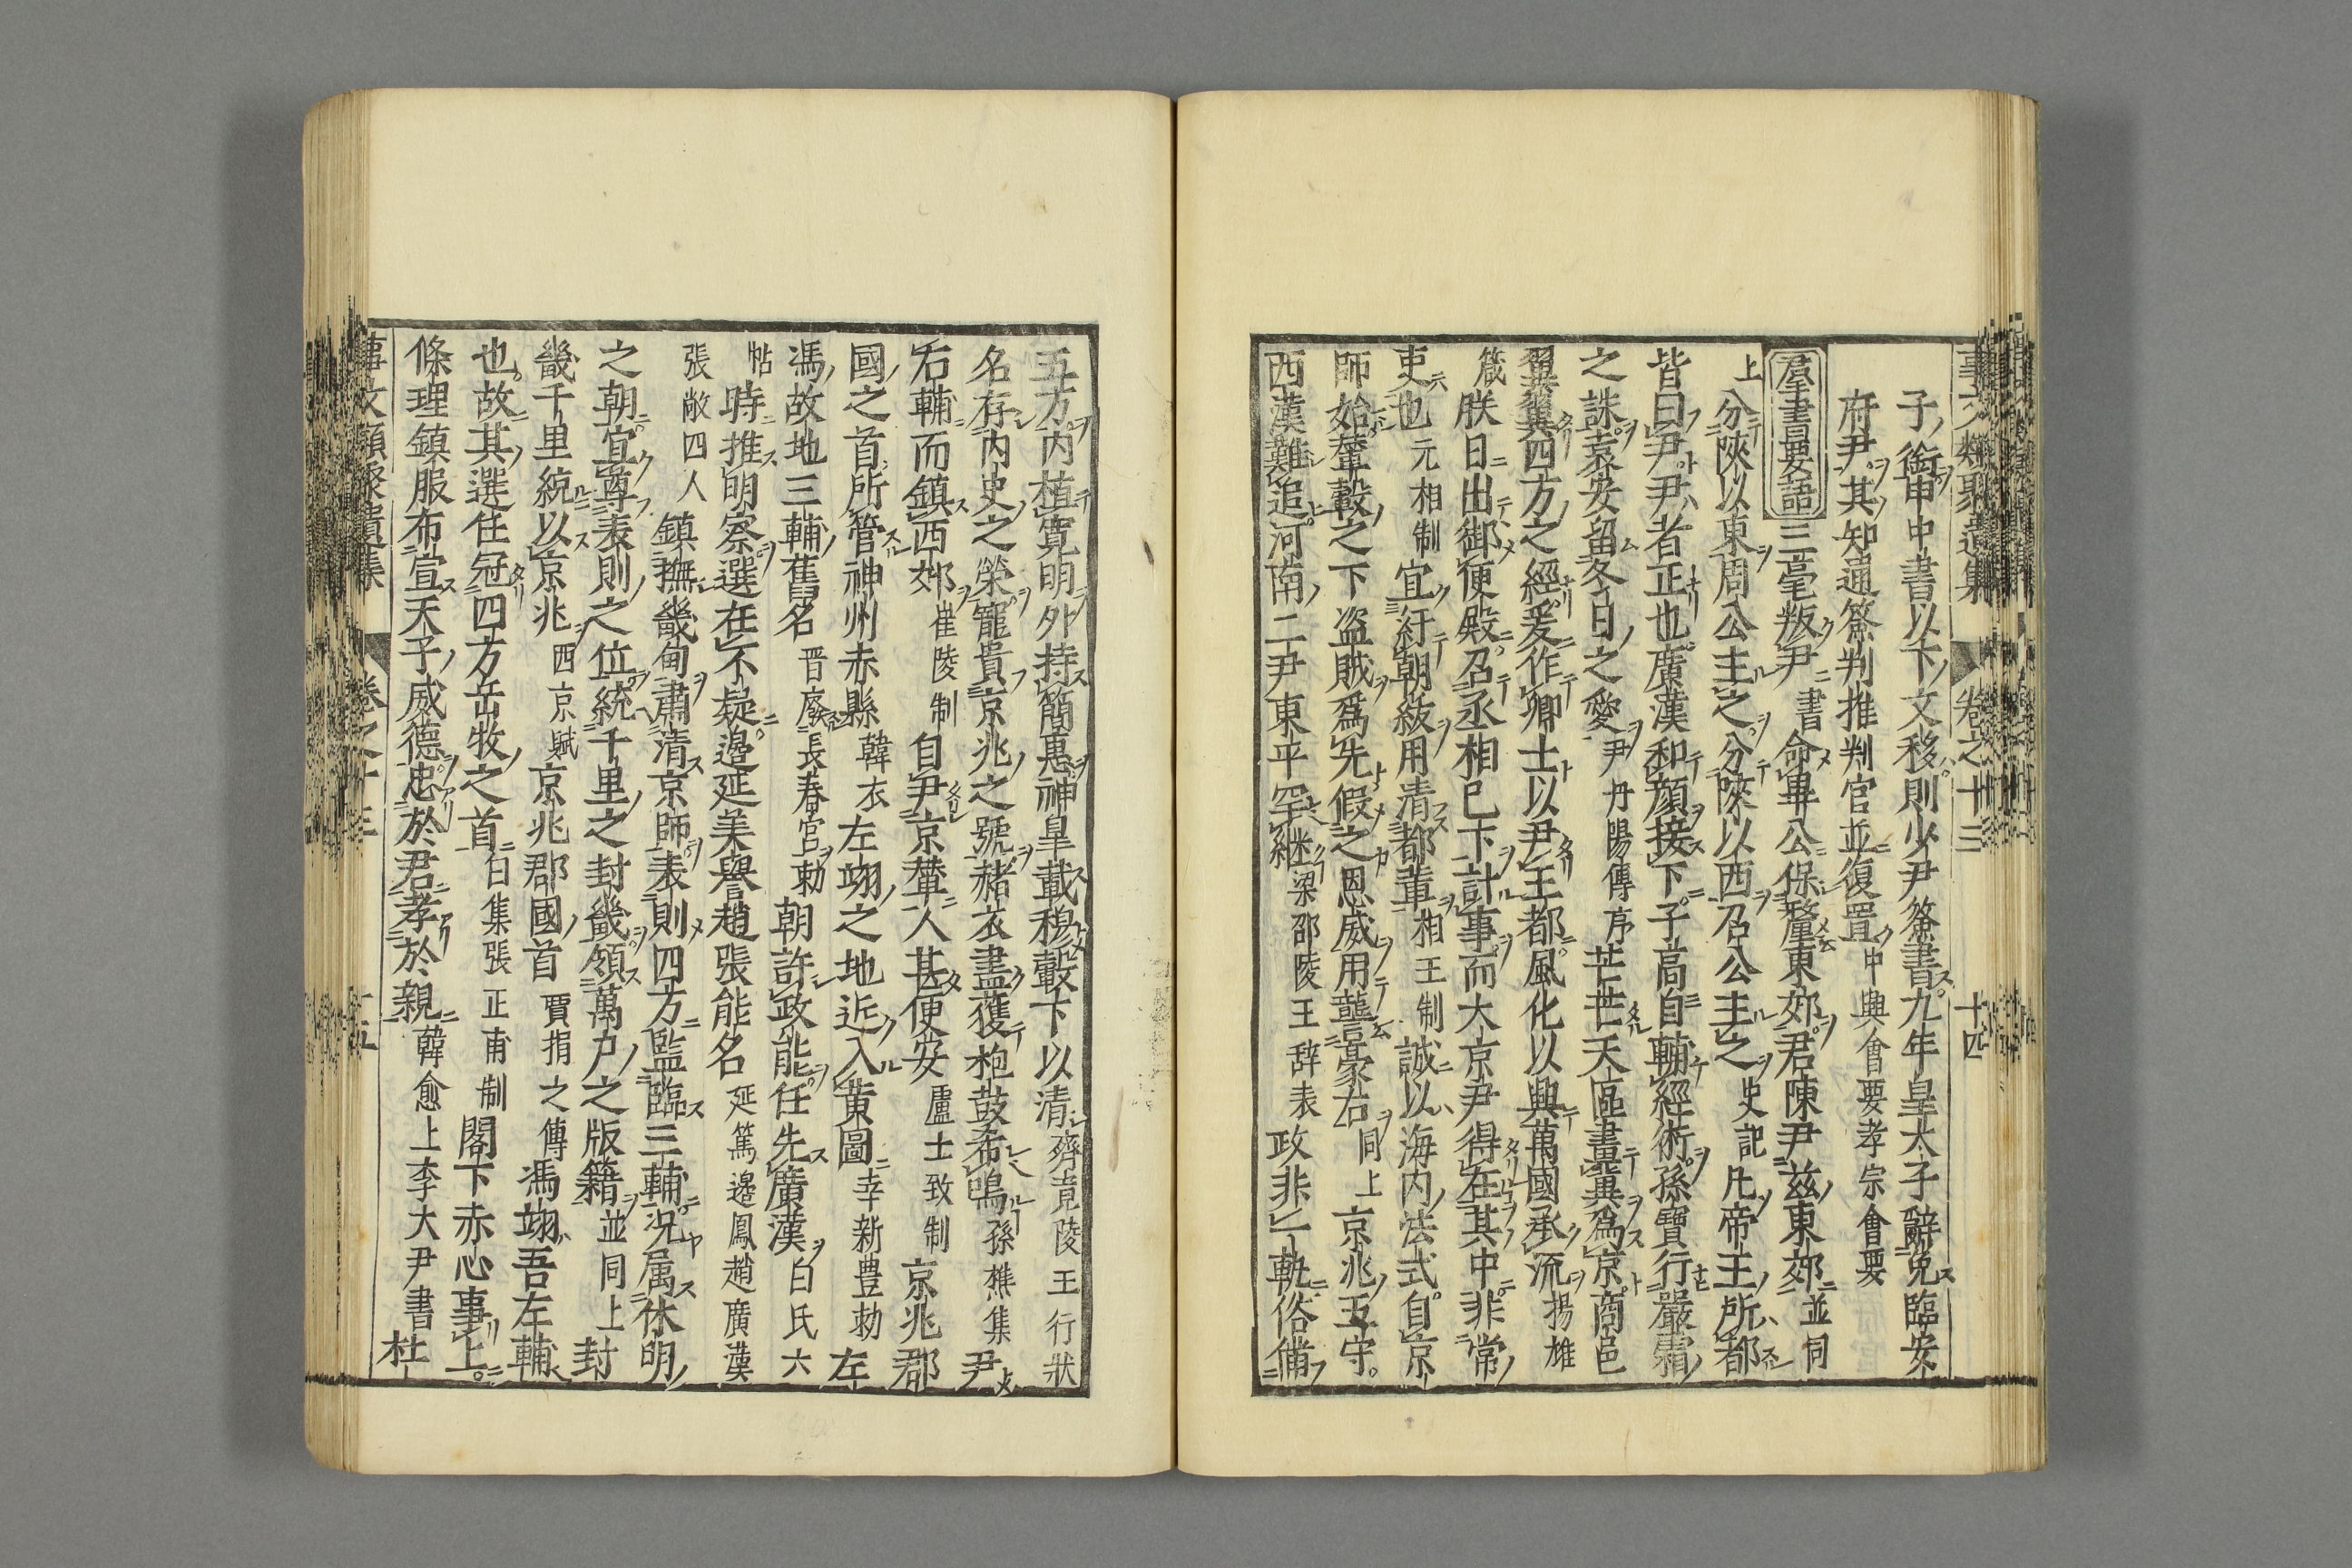 事文類聚遺集 卷之十三 十四
子銜申中書以下文移則少尹簽書九年皇太子辭免臨安
府尹其知通簽判推判官並復置中興會要孝宗會要
羣書要語三亳叛尹書命畢公保釐東郊君陳尹茲東郊並同
上分陝以東周公主之分陝以西召公主之史記凡帝王所都
皆曰尹尹者正也廣漢和顔接下子高自輔經術孫寶行嚴霜
之誅袁安留冬日之愛尹丹陽傳序芒芒天區畫冀爲京商邑
翼翼四方之經爰作卿士以尹王都風化以興萬國承流揚雄
箴朕日出御便殿召丞相已下計事而大京尹得在其中非常
吏也元相制宜紆朝紱用清都輦相王制誠以海内法式自京
師始輦轂之下盜賊爲先假之恩威用讋豪右同上京兆五守
西漢難追河南二尹東平罕継梁邵陵王辞表政非一軌俗備
五方内植寛明外持簡惠神皐載穆轂下以清齊竟陵王行狀
名存内史之榮寵貴京兆之號赭衣盡獲枹鼓希鳴孫樵集尹
右輔而鎮西郊崔陵制自尹京輦人甚便安盧士致制京兆郡
國之首所管神州赤縣韓衣左翊之地近入黄圖幸新豊勅左
馮故地三輔舊名晋廢長春宮勅朝許政能任先廣漢白氏六
帖時推明察選在不疑邉延美譽趙張能名延篤邉鳳趙廣漢
張敞四人鎮撫畿甸肅清京師表則四方監臨三輔况属休明
之朝宜尊表則之位統千里之封畿領萬户之版籍並同上封
畿千里統以京兆西京賦京兆郡國首賈捐之傳馮翊吾左輔
也故其選任冠四方岳牧之首白集張正甫制閣下赤心事上
條理鎮服布宣天子威德忠於君孝於親韓愈上李大尹書杜
事文類聚遺集 卷之十三 十五